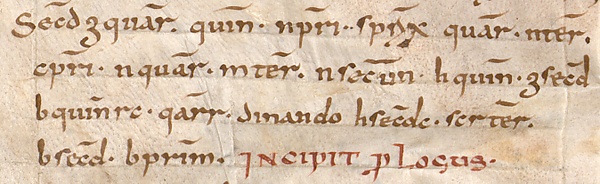 Secd ʒ quar̄. quin̄. npr̄i. spr̄ıx quar̄. nter̄.
cpr̄i. n quar̄. m ter̄. n secun̄. h quin̄. ʒ secd
b quin̄rc. q̄arr. dinando h sec̄dc. scr ter̄.
b sec̄d. b prim̄. INCIPIT ꝓLOGUS.